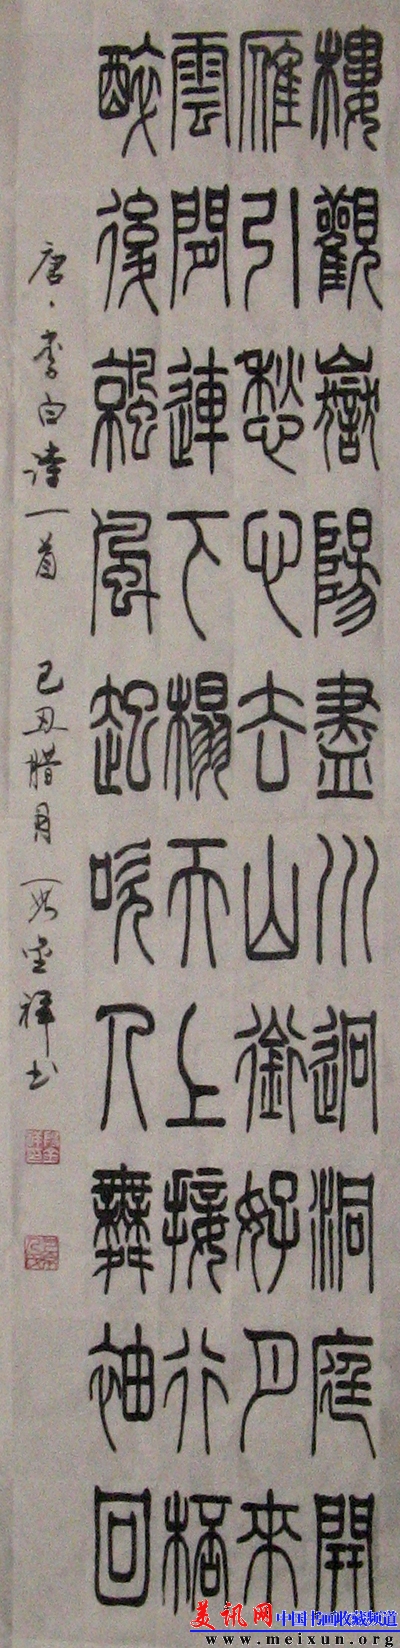 樓觀嶽陽盡川迥洞庭開
雁引愁心去山銜好月來
雲間連下榻天上接行桮
醉後涼風起吹人舞袖回
唐、李白詩一首 己丑腊月 祥书
美讯网 中国书画收藏频道
www.meixun.org